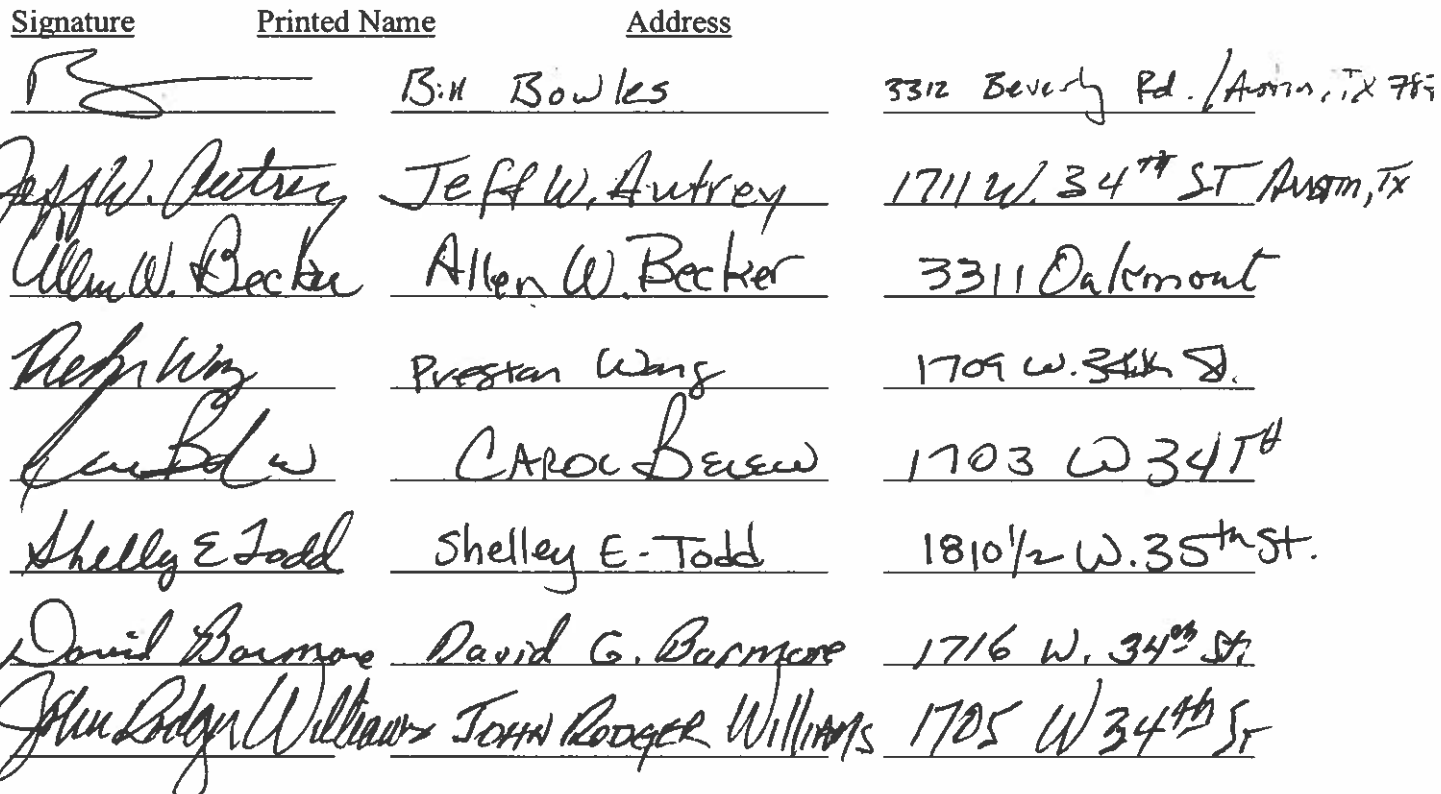 Signature Printed Name Address
Bill Bowles 3312 Beverly Rd. / Austin, TX 787
Jeff W. Autrey Jeff W. Autrey 1711 W. 34TH ST Austin, TX
Allen W. Becker Allen W. Becker 3311 Oakmont
Preston Wang 1709 W. 34th St.
CAROL BELEW 1703 W 34TH
Shelly E Todd Shelley E-Todd 1810 1/2 W. 35th St.
David Barmore David G. Barmore 1716 W. 34th St.
John Rodger Williams JOHN RODGER WILLIAMS 1705 W 34th ST